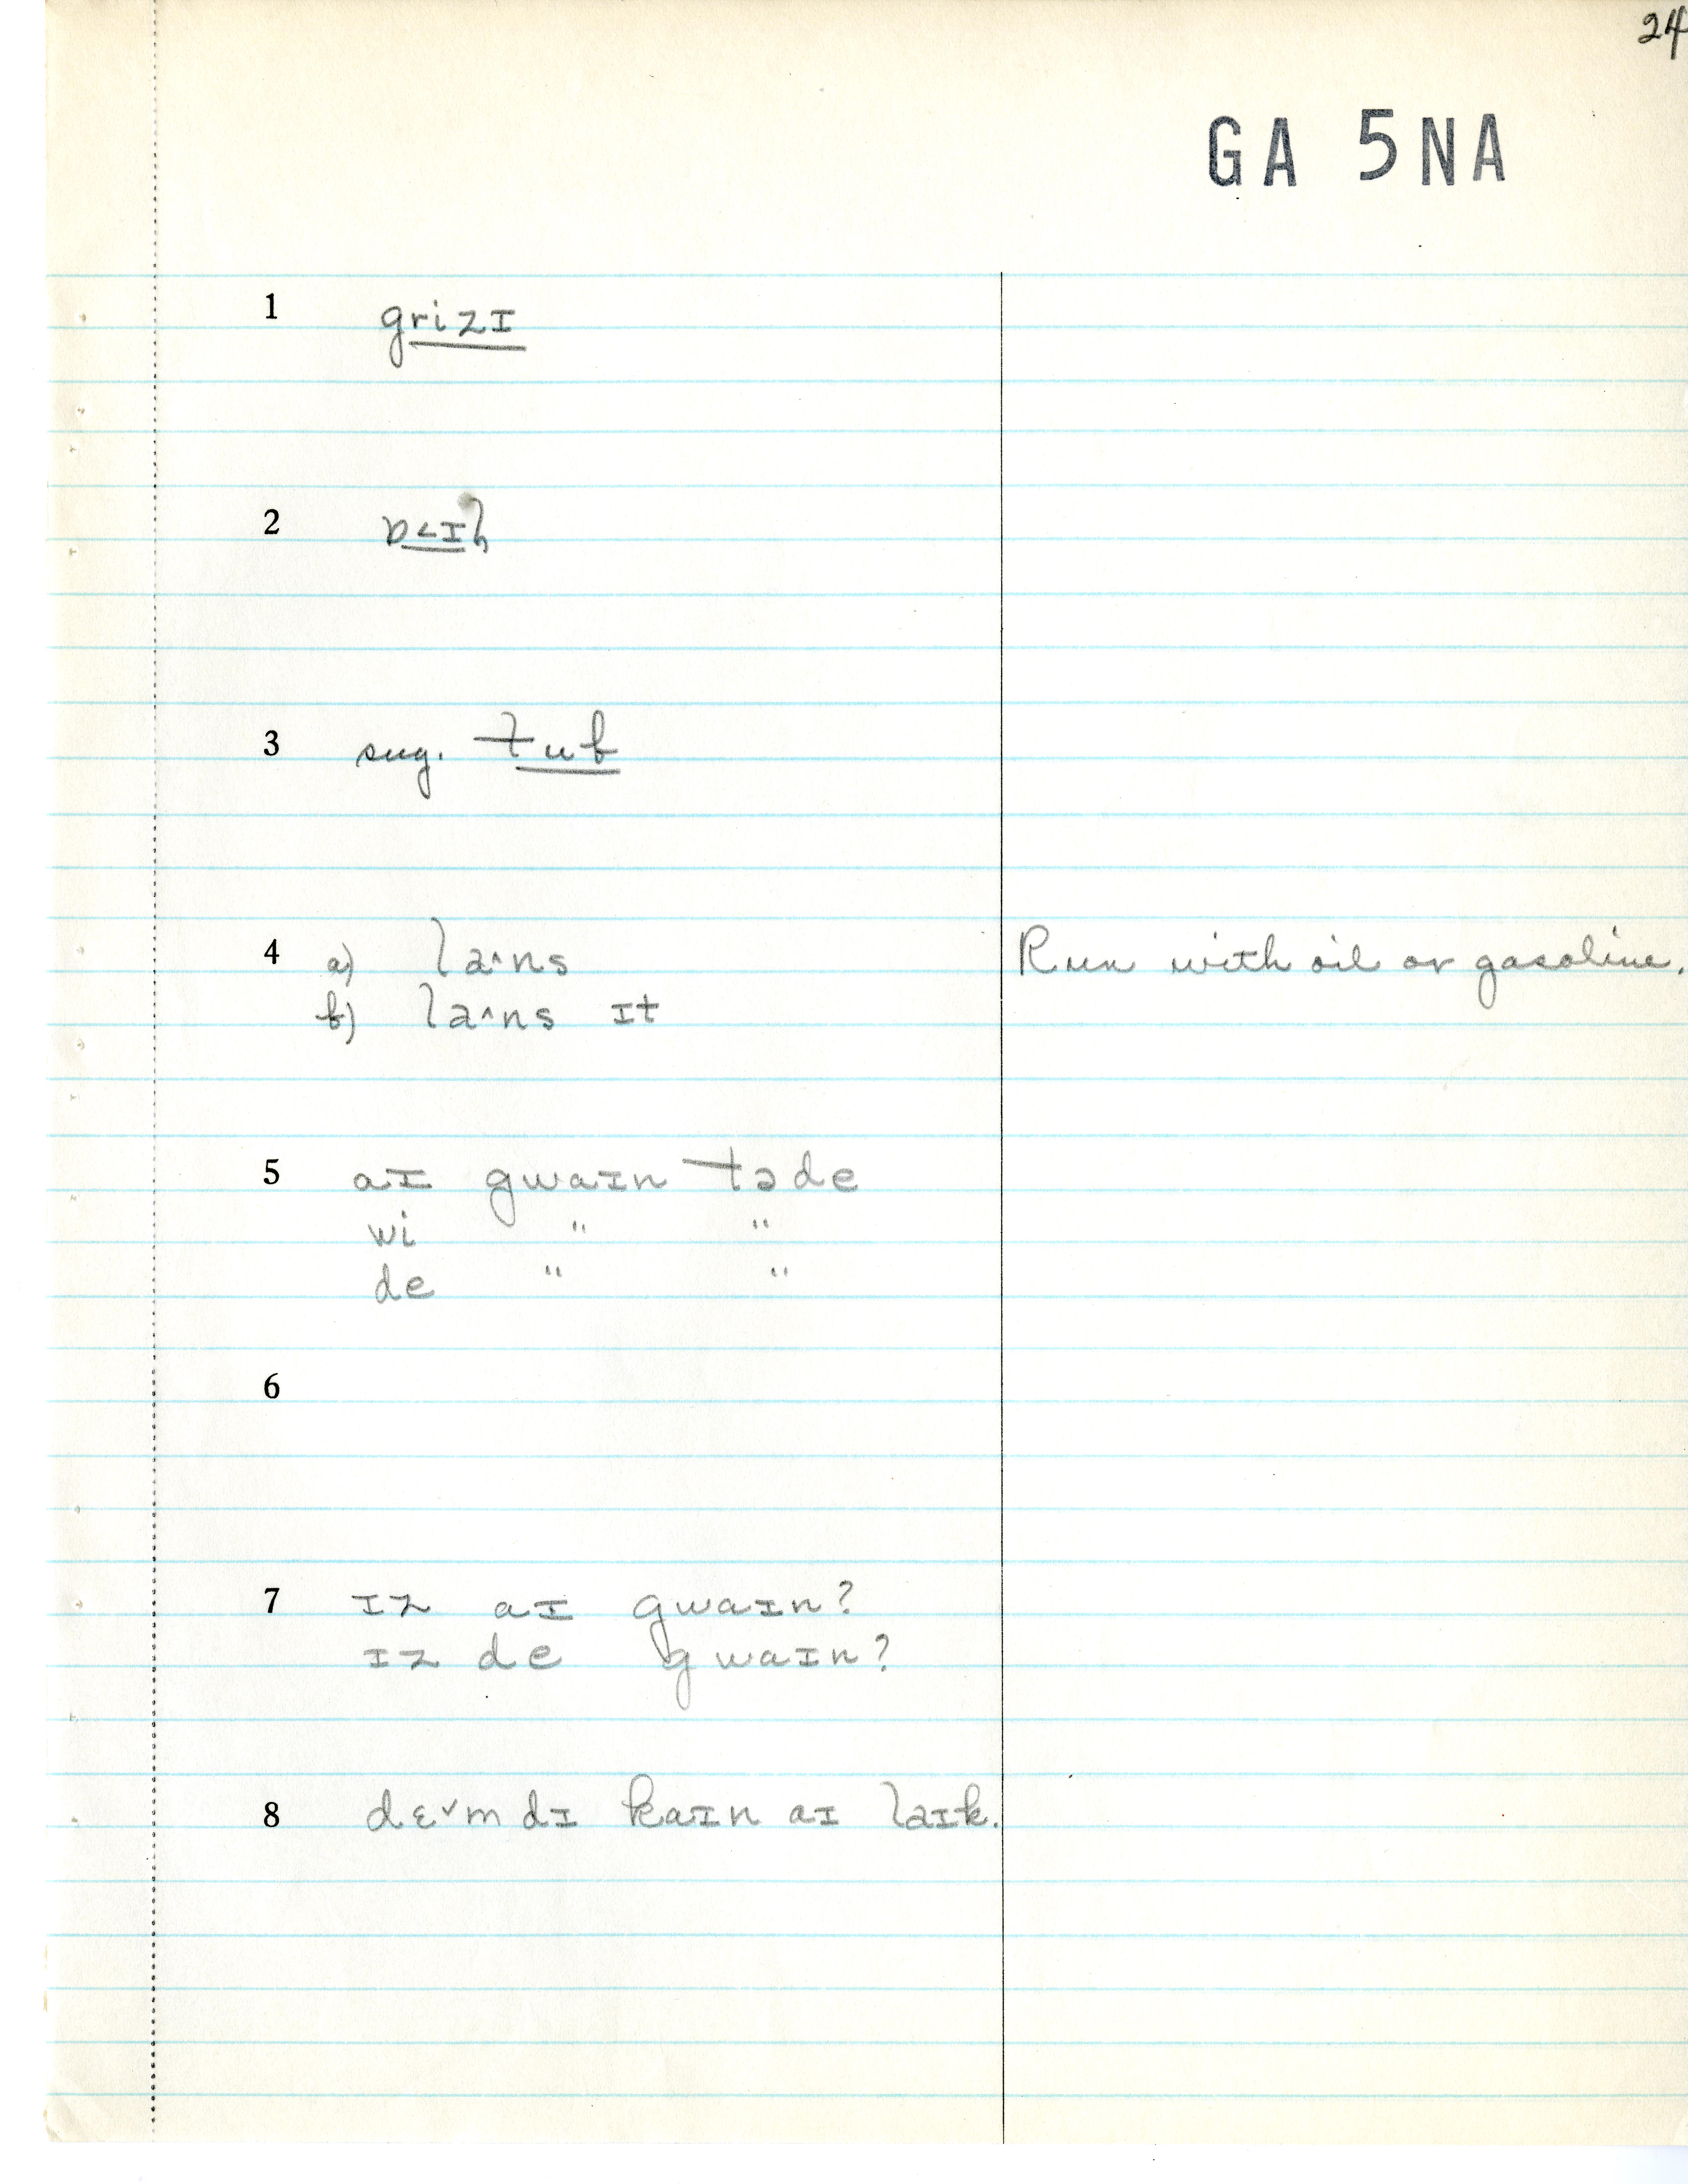 24
GA 5NA
1 grizɪ
2 ɒ<ɪl
3 sug. tub
4 a) la^ns Run with oil or gasoline.
b) la^ns ɪt
5 aɪ gwaɪn təde
wi " "
de " "
6
7 ɪz aɪ gwaɪn?
ɪz de gwaɪn?
8 dɛˇm dɪ kaɪn aɪ laɪk.